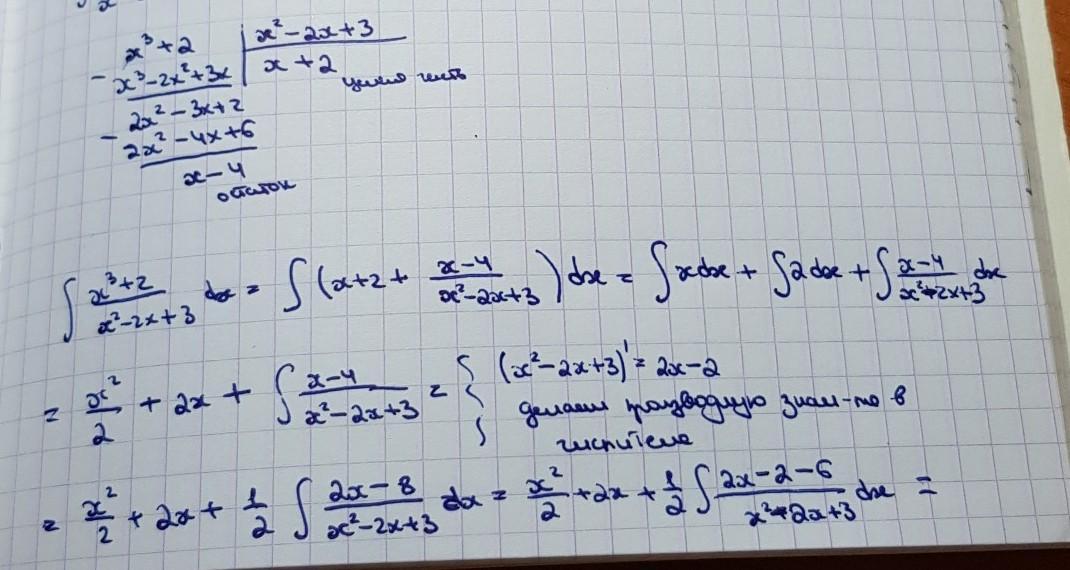 x³ + 2 | x² - 2x + 3
- x³ - 2x² + 3x | x + 2 целая часть
2x² - 3x + 2
- 2x² - 4x + 6
x - 4
остаток
∫ (x³ + 2)/(x² - 2x + 3) dx = ∫ (x + 2 + (x - 4)/(x² - 2x + 3)) dx = ∫ x dx + ∫ 2 dx + ∫ (x - 4)/(x² - 2x + 3) dx
= x²/2 + 2x + ∫ (x - 4)/(x² - 2x + 3) = { (x² - 2x + 3)' = 2x - 2
делаем производную знам-ля в
числителе
= x²/2 + 2x + 1/2 ∫ (2x - 8)/(x² - 2x + 3) dx = x²/2 + 2x + 1/2 ∫ (2x - 2 - 6)/(x² - 2x + 3) dx =